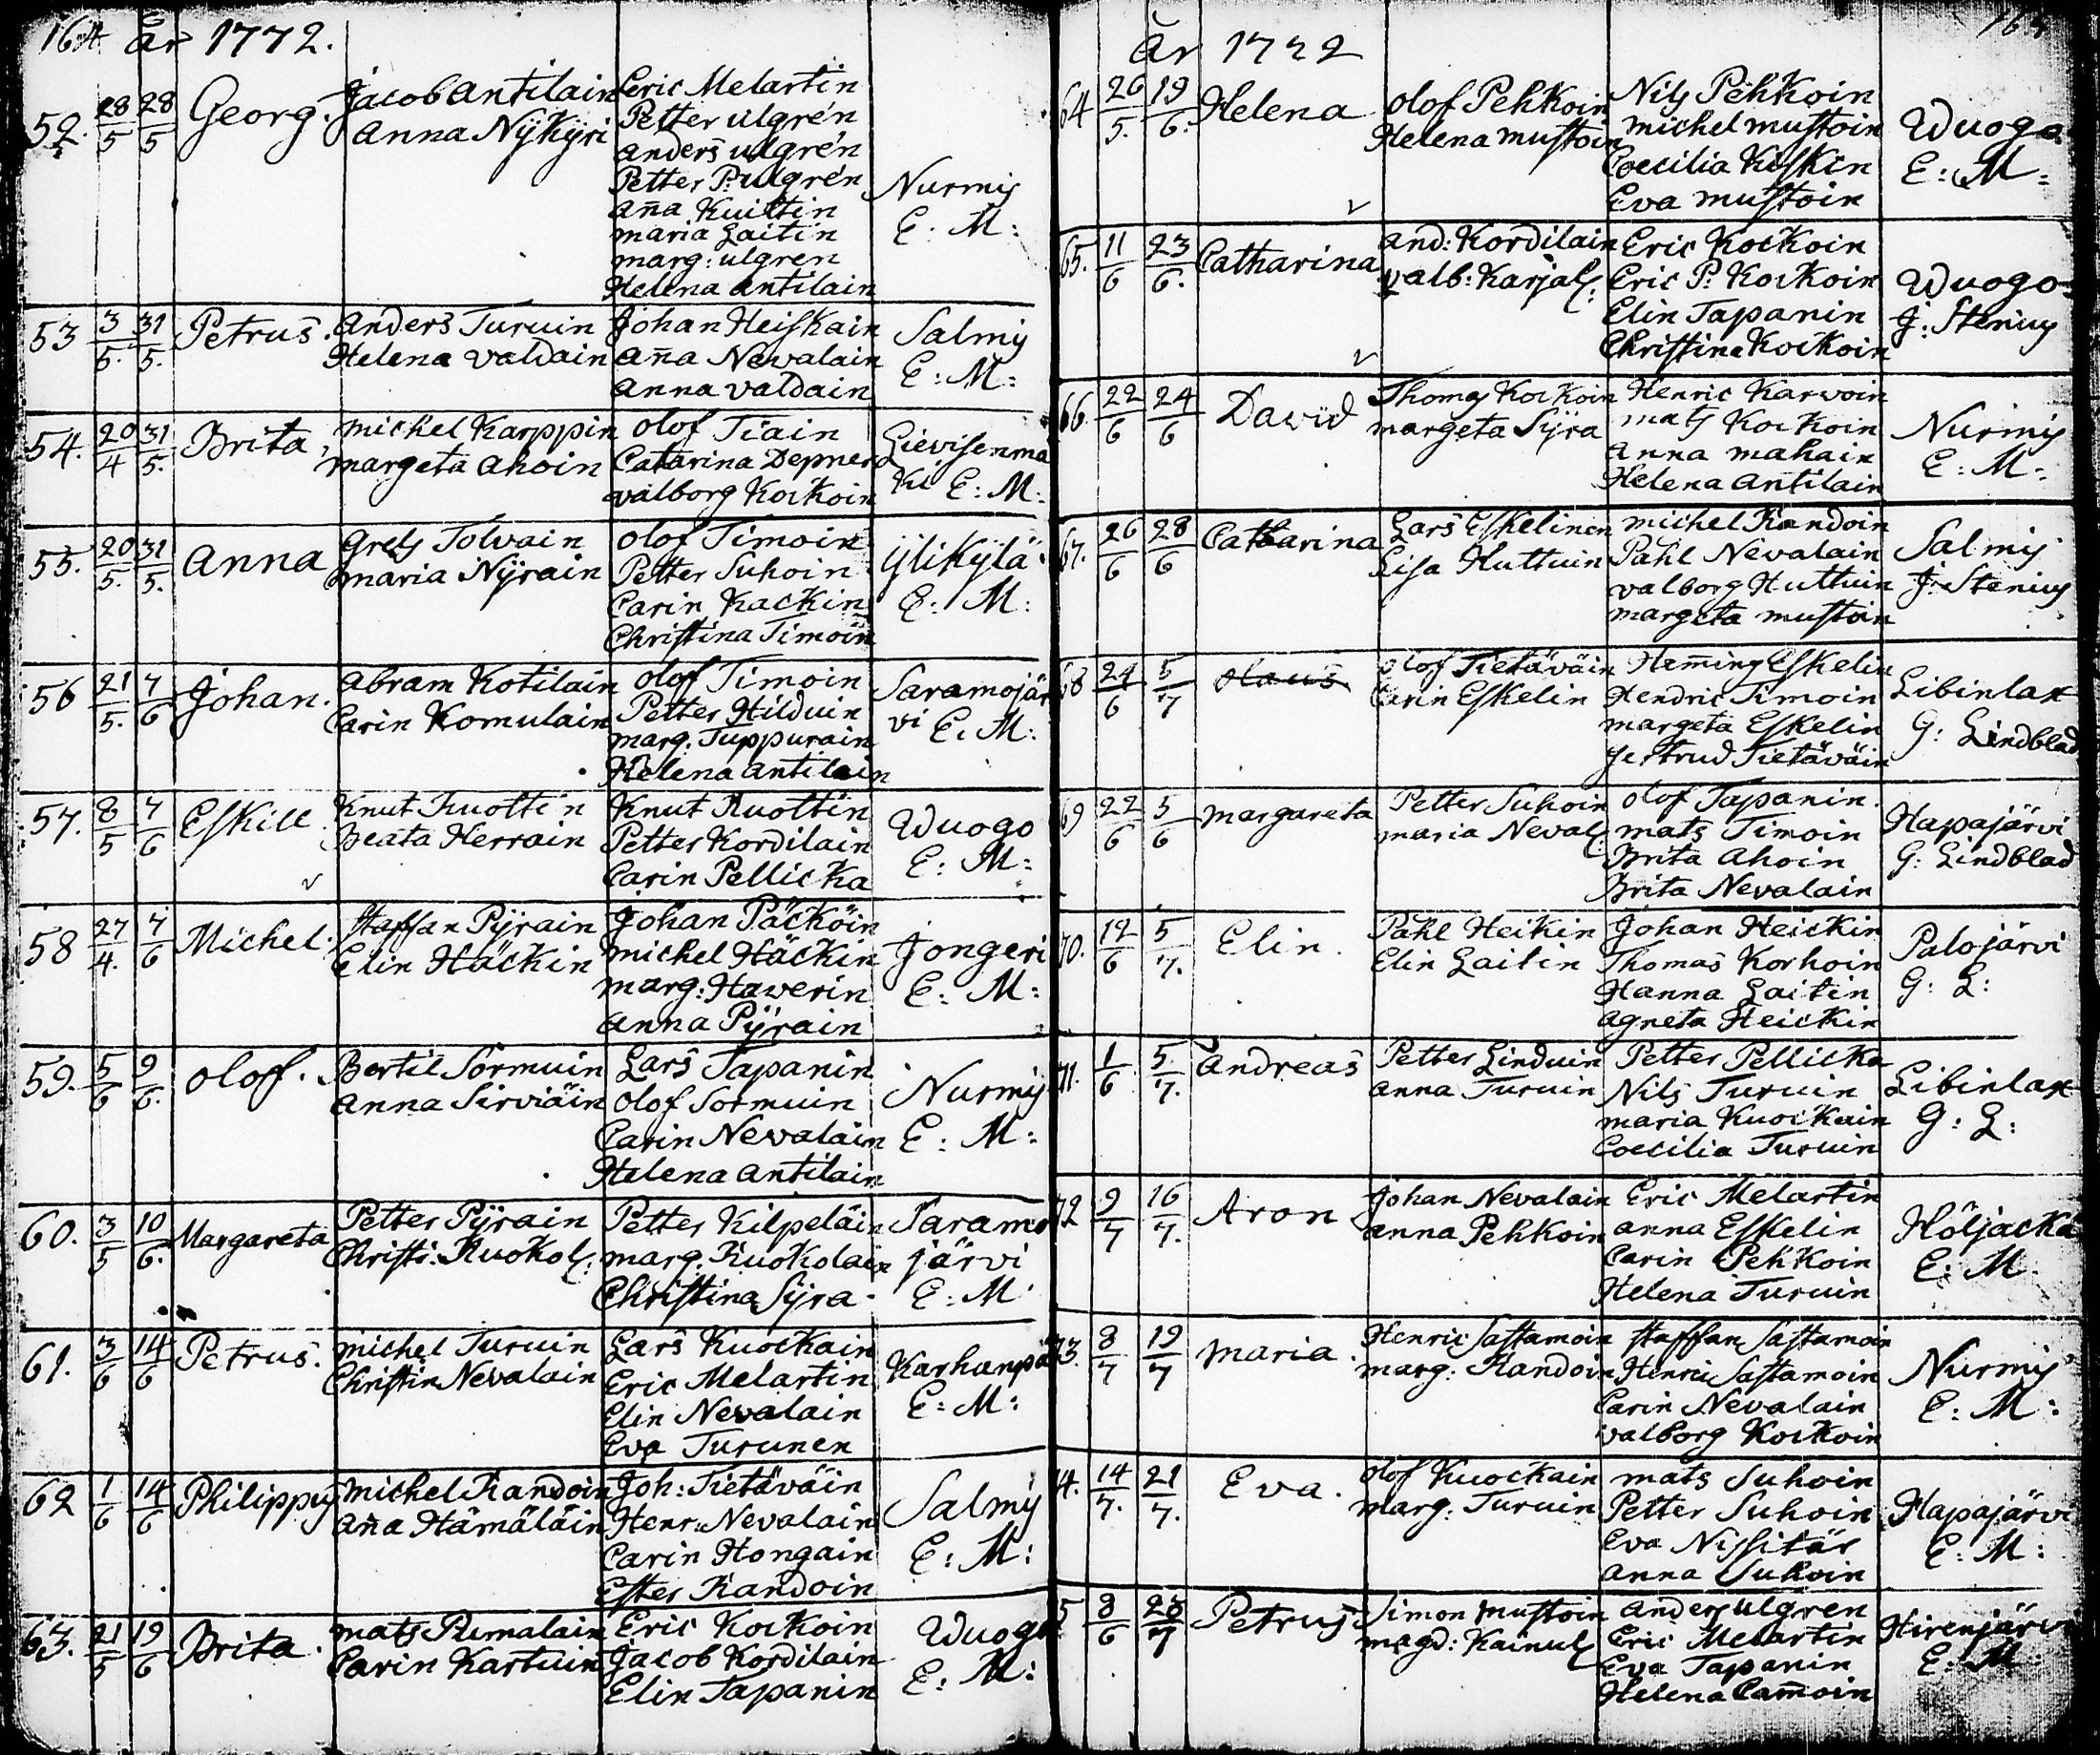 164 År 1772.
52. 28/5 28/5 Georg. Jacob Antilain Eric Melartin
Anna Nÿkÿri Petter Ulgrén
Anders Ulgrén
Petter P: Ulgrén Nurmis
Ana Kuittin E: M:
Maria Laitin
Marg: Ulgren
Helena Antilain
53 3/5. 31/5. Petrus. Anders Turuin Johan Heiskain Salmis
Helena Valdain Ana Nevalain E: M:
Anna Valdain
54. 20/4 31/5. Brita, Michel Karppin Olof Tiain Lievisenmä
Margeta Ahoin Catarina Depner ki E: M:
Valborg Korkoin
55. 20/5. 31/5. Anna Grels Tolvain Olof Timoin Ÿlikÿlä
Maria Nÿrain Petter Suhoin E: M:
Carin Kackin
Christina Timoin
56 21/5. 7/6 Johan. Abram Kotilain Olof Timoin Saramojär
Carin Komulain Petter Hilduin vi E. M:
Marg. Tuppurain
Helena Antilain
57. 8/5 7/6 Eskill Knut Ruottin Knut Ruottin Wuogo
Beata Herrain Petter Kordilain E: M:
Carin Pellicka
58 27/4. 7/6 Michel. Staffan Pÿrain Johan Päcköin Jongeri
Elin Häckin Michel Häckin E: M:
Marg: Haverin
Anna Pÿrain
59. 5/6 9/6. Olof. Bertil Sormuin Lars Tapanin Nurmis
Anna Sirviäin Olof Sormuin E: M:
Carin Nevalain
Helena Antilain
60. 3/5 10/6. Margareta Petter Pÿrain Petter Kilpeläin Saramo
Christi: Ruokol: Marg. Ruokolain järvi
Christina Sÿra E: M
61. 3/6 14/6 Petrus. Michel Turuin Lars Kuockain Karhunpä
Christin Nevalain Eric Melartin E: M:
Elin Nevalain
Eva Turunen
62 1/6 14/6 Philippus Michel Randoin Joh: Tietäväin Salmis
Ana Hämäläin Henr: Nevalain E: M:
Carin Hongain
Ester Randoin
63. 21/5 19/6 Brita. Mats Rumalain Eric Korkoin Wuogo
Carin Kartuin Jacob Kordilain E: M:
Elin Tapanin
År 1772
64 26/5. 19/6. Helena Olof Pehkoin Nils Pehkoin Wuogo
Helena Mustoin Michel Mustoin E: M:
Coecilia Koskin
Eva Mustoin
65. 11/6 23/6. Catharina And: Kordilain Eric Korkoin Wuogo
Valb: Karjal: Eric P: Korkoin J: Stenius
Elin Tapanin
Christina Korkoin
66. 22/6 24/6 David Thomas Korkoin Henric Karvoin Nurmis
Margeta Sÿra Mats Korkoin E: M:
Anna Mahain
Helena Antilain
67. 26/6 28/6 Catharina Lars Eskelinen Michel Randoin Salmis
Lisa Huttuin Pahl Nevalain J: Stenius
Valborg Huttuin
Margeta Mustoin
68 24/6 5/7 Olaus Olof Tietäväin Heming Eskelin Libinlax
Carin Eskelin Hendric Timoin G: Lindblad
Margeta Eskelin
Gertrud Tietäväin
69 22/6 5/6 Margareta Petter Suhoin Olof Tapanin Hapajärvi
Maria Neval: Mats Timoin G: Lindblad
Brita Ahoin
Brita Nevalain
70. 12/6 5/7. Elin. Pahl Heikin Johan Heickin Palojärvi
Elin Laitin Thomas Korhoin G: L:
Hanna Laitin
Agneta Heickin
71. 1/6 5/7. Andreas Petter Linduin Petter Pellicka Libinlax
Anna Turuin Nils Turuin G: L:
Maria Kuockain
Coecilia Turuin
72 9/7 16/7. Aron Johan Nevalain Eric Melartin Höljäckä
Anna Pehkoin Anna Eskelin E: M.
Carin Pehkoin
Helena Turuin
73. 8/7 19/7 Maria. Henric Sastamoin Staffan Sastamoin Nurmis
Marg: Randoin Henric Sastamoin E: M:
Carin Nevalain
Valborg Korkoin
4. 14/7. 21/7. Eva. Olof Kuockain Mats Suhoin Hapajärvi
Marg: Turuin Petter Suhoin E: M:
Eva Nissitär
Anna Suhoin
5 8/6 28/7 Petrus Simon Mustoin Anders Ulgren Hirenjärvi
Magd: Kainul: Eric Melartin E: M
Eva Tapanin
Helena Camoin